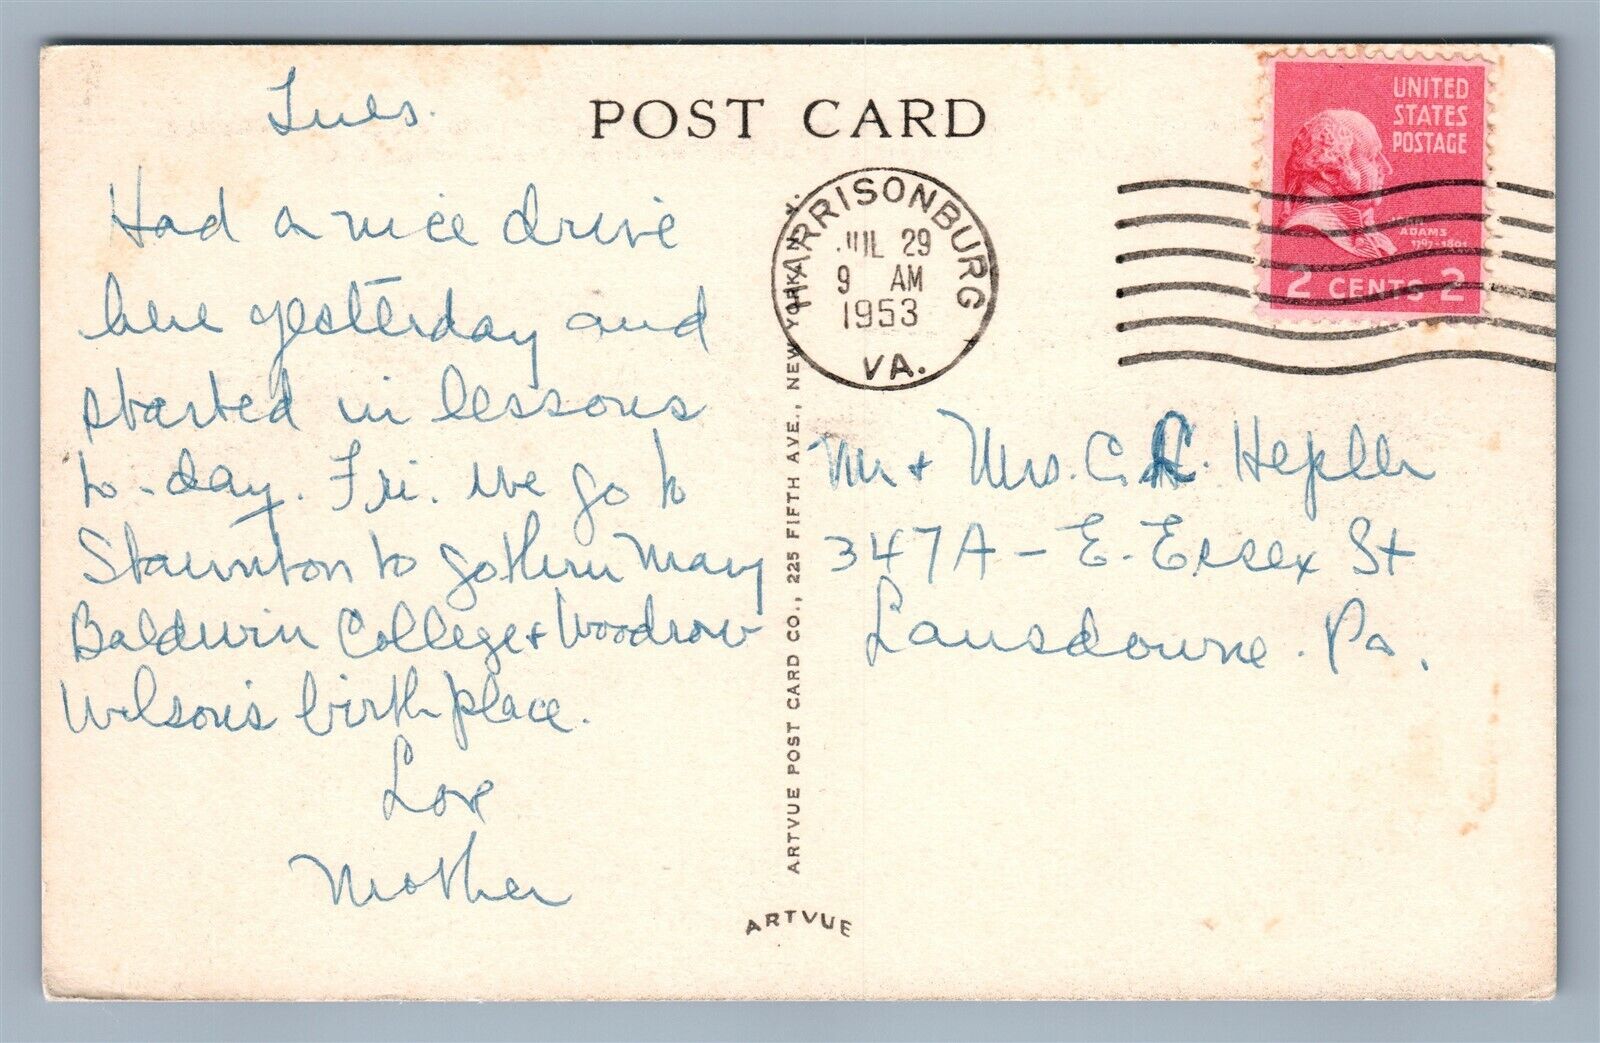 Tues.
Had a nice drive
here yesterday and
started in lessons
to-day. Fri. we go to
Staunton to go thru Mary
Baldwin College + Woodrow
Wilson's birthplace.
Love
Mother
POST CARD
HARRISONBURG
JUL 29
9 AM
1953
VA.
UNITED
STATES
POSTAGE
ADAMS
1797-1801
2 CENTS 2
Mr + Mrs. C. Hepler
347A - E. Essex St
Lansdowne. Pa.
ARTVUE POST CARD CO., 225 FIFTH AVE., NEW YORK, N. Y.
ARTVUE